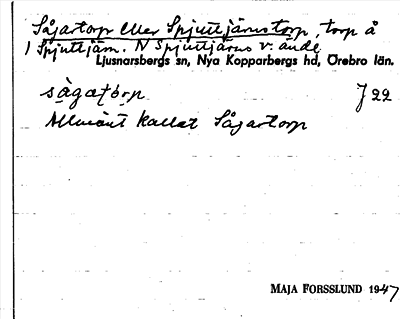 Sågartorp eller Spjuttjärnstorp, torp å
1 Spjuttjärn. N Spjuttjärns v. ände
Ljusnarsbergs sn, Nya Kopparbergs hd, Örebro län.
sågatorp J 22
Allmänt kallat Sågartorp
MAJA FORSSLUND 1947